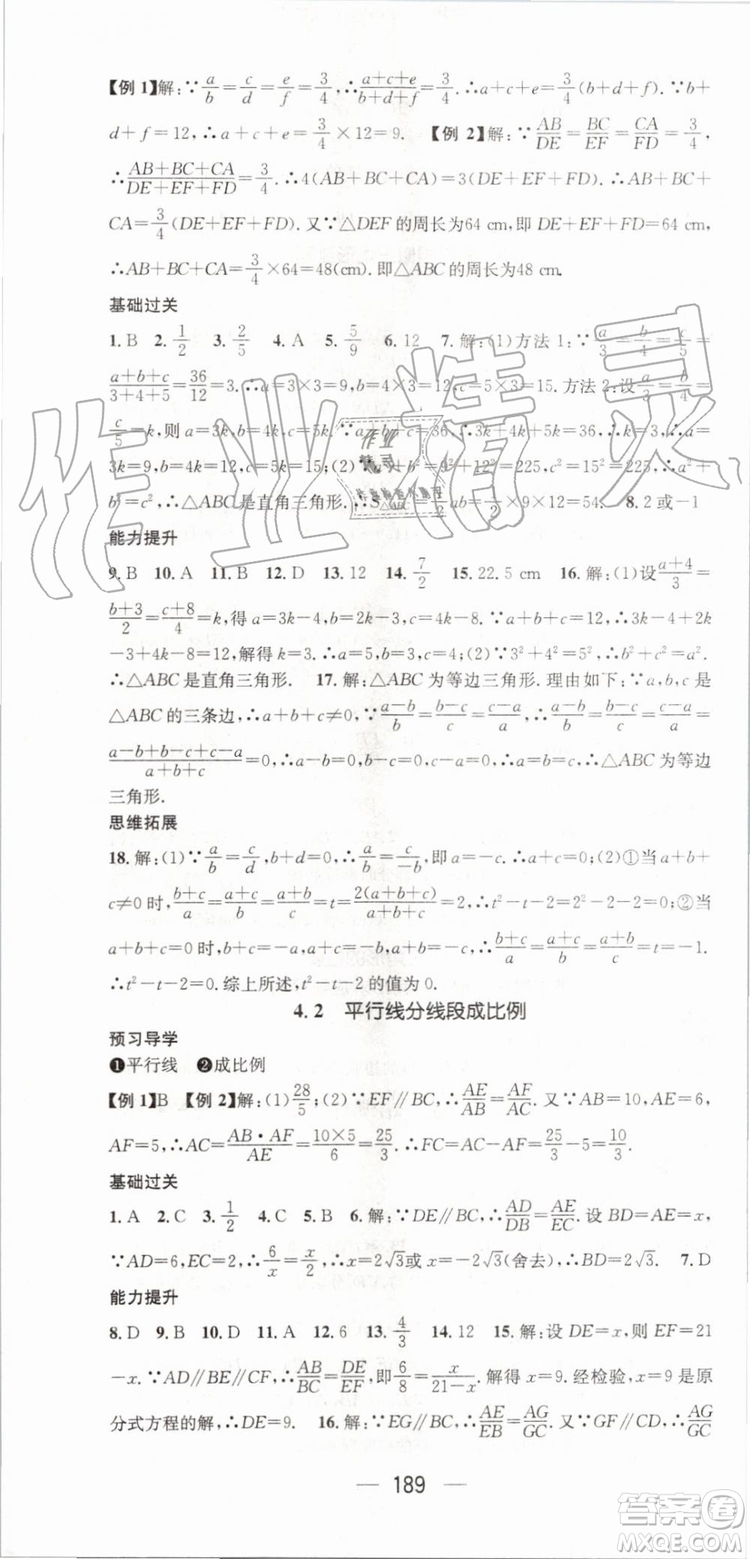 【例1】解:∵a/b=c/d=e/f=3/4,∴(a+c+e)/(b+d+f)=3/4.∴a+c+e=3/4(b+d+f).∵b+
d+f=12,∴a+c+e=3/4×12=9. 【例2】解:∵AB/DE=BC/EF=CA/FD=3/4,
∴(AB+BC+CA)/(DE+EF+FD)=3/4.∴4(AB+BC+CA)=3(DE+EF+FD).即AB+BC+
CA=3/4(DE+EF+FD).又∵△DEF的周长为64 cm,即DE+EF+FD=64cm,
∴AB+BC+CA=3/4×64=48(cm).即△ABC的周长为48cm.
基础过关
1.B 2.1/2 3.2/5 4.A 5.5/9 6.12 7.解:(1)方法1:∵a/3=b/4=c/5=
(a+b+c)/(3+4+5)=36/12=3.∴a=3×3=9,b=4×3=12,c=5×3=15.方法2:设a/3=b/4=
c/5=k,则a=3k,b=4k,c=5k.∵a+b+c=36,∴3k+4k+5k=36.∴k=3.∴a=
3k=9,b=4k=12,c=5k=15.(2)∵a²+b²=9²+12²=225,c²=15²=225,∴a²+
b²=c²,∴△ABC是直角三角形.∴S△ABC=1/2ab=1/2×9×12=54. 8.2或-1
能力提升
9.B 10.A 11.B 12.D 13.12 14.7/2 15.22.5 cm 16.解:(1)设(a+4)/3=
(b+3)/2=(c+8)/4=k,得a=3k-4,b=2k-3,c=4k-8.∵a+b+c=12,∴3k-4+2k
-3+4k-8=12,解得k=3.∴a=5,b=3,c=4.(2)∵3²+4²=5²,∴b²+c²=a².
∴△ABC是直角三角形. 17.解:△ABC为等边三角形.理由如下:∵a,b,c是
△ABC的三条边,∴a+b+c≠0.∵(a-b)/c=(b-c)/a=(c-a)/b,∴(a-b)/c=(b-c)/a=(c-a)/b=
(a-b+b-c+c-a)/(a+b+c)=0,∴a-b=b-c=c-a=0,∴a=b=c.∴△ABC为等边
三角形.
思维拓展
18.解:(1)∵a/b=c/d,b+d=0,∴a/b=c/d=(a+c)/(b+d),∴a+c=0,即a=-c.(2)①当a+b+
c≠0时,(b+c)/a=(a+c)/b=(a+b)/c=t=2(a+b+c)/(a+b+c)=2,∴t²-t-2=2²-2-2=0;②当
a+b+c=0时,b+c=-a,a+c=-b,a+b=-c.∵(b+c)/a=(a+c)/b=(a+b)/c=t=-1.
∴t²-t-2=0.综上所述,t²-t-2的值为0.
4.2 平行线分线段成比例
预习导学
❶平行线 ❷成比例
【例1】B 【例2】解:(1)28/5;(2)∵EF∥BC,∴AE/AB=AF/AC.又∵AB=10,AE=6,
AF=5,∴AC=AB·AF/AE=10×5/6=25/3.∴FC=AC-AF=25/3-5=10/3.
基础过关
1.A 2.C 3.1/2 4.C 5.B 6.解:∵DE∥BC,∴AD/DB=AE/EC.设BD=AE=x,
∵AD=6,EC=2,∴6/x=x/2,∴x=2√3或x=-2√3(舍去),∴BD=2√3. 7.D
能力提升
8.D 9.B 10.D 11.A 12.6 13.4/3 14.12 15.解:设DE=x,则EF=21
-x.∵AD∥BE∥CF,∴AB/BC=DE/EF,即6/8=x/(21-x).解得x=9.经检验,x=9是原
分式方程的解,∴DE=9. 16.解:∵EG∥BC,∴AE/EB=AG/GC.又∵GF∥CD,∴AG/GC=
189
作业精灵
作业
精灵
答案圈
MXQE.COM